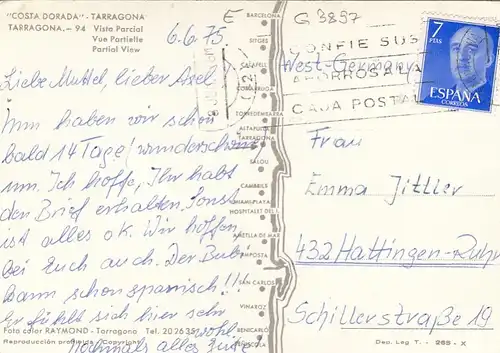 "COSTA DORADA" - TARRAGONA
TARRAGONA. - 94 Vista Parcial
Vue Partielle
Partial View
6.6.75
Liebe Muttel, lieber Axel
Nun haben wir schon
bald 14 Tage (wunderschön)
um. Ich hoffe, Ihr habt
den Brief erhalten. Sonst
ist alles ok. Wir hoffen
bei Euch auch. Der Bubi
kann schon spanisch!!!
Er fühlt sich hier sehr
wohl.
Nochmals alles Gute
Foto color RAYMOND - Tarragona Tel. 202635
Reproducción prohibida (Copyright)
E
BARCELONA
SITGES
CALAFELL
TORREDEMBARRA
ALTAFULLA
TARRAGONA
SALOU
CAMBRILS
MIAMI PLAYA
HOSPITALET DEL I.
AMETLLA DE MAR
AMPOSTA
SAN CARLOS
VINAROZ
BENICARLÓ
PEÑISCOLA
G 3897
CONFIE SUS
AHORROS A LA
CAJA POSTAL
West-Germany
7
PTAS
ESPAÑA
CORREOS
Frau
Emma Jittler
432 Hattingen-Ruhr
Schillerstraße 19
Dep. Leg. T. - 265 - X